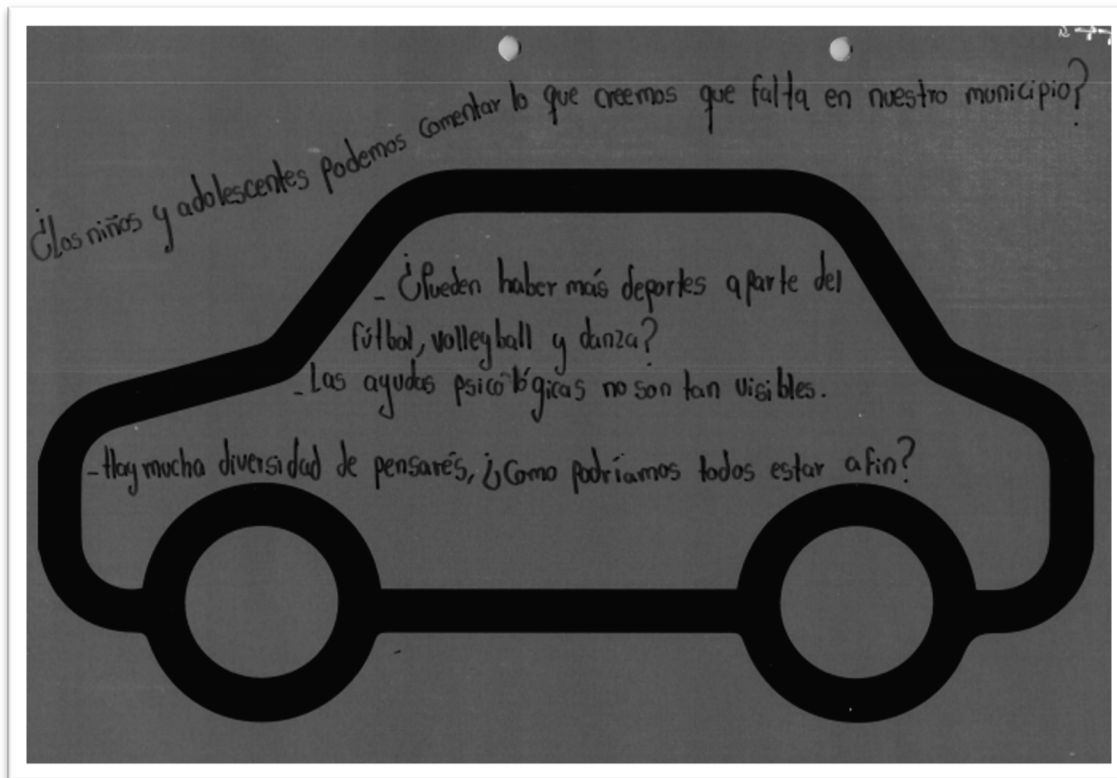 ¿Los niños y adolescentes podemos comentar lo que creemos que falta en nuestro municipio?
- ¿Pueden haber más deportes aparte del
fútbol, volleyball y danza?
- Las ayudas psicológicas no son tan visibles.
- Hay mucha diversidad de pensarés, ¿Como podríamos todos estar afin?